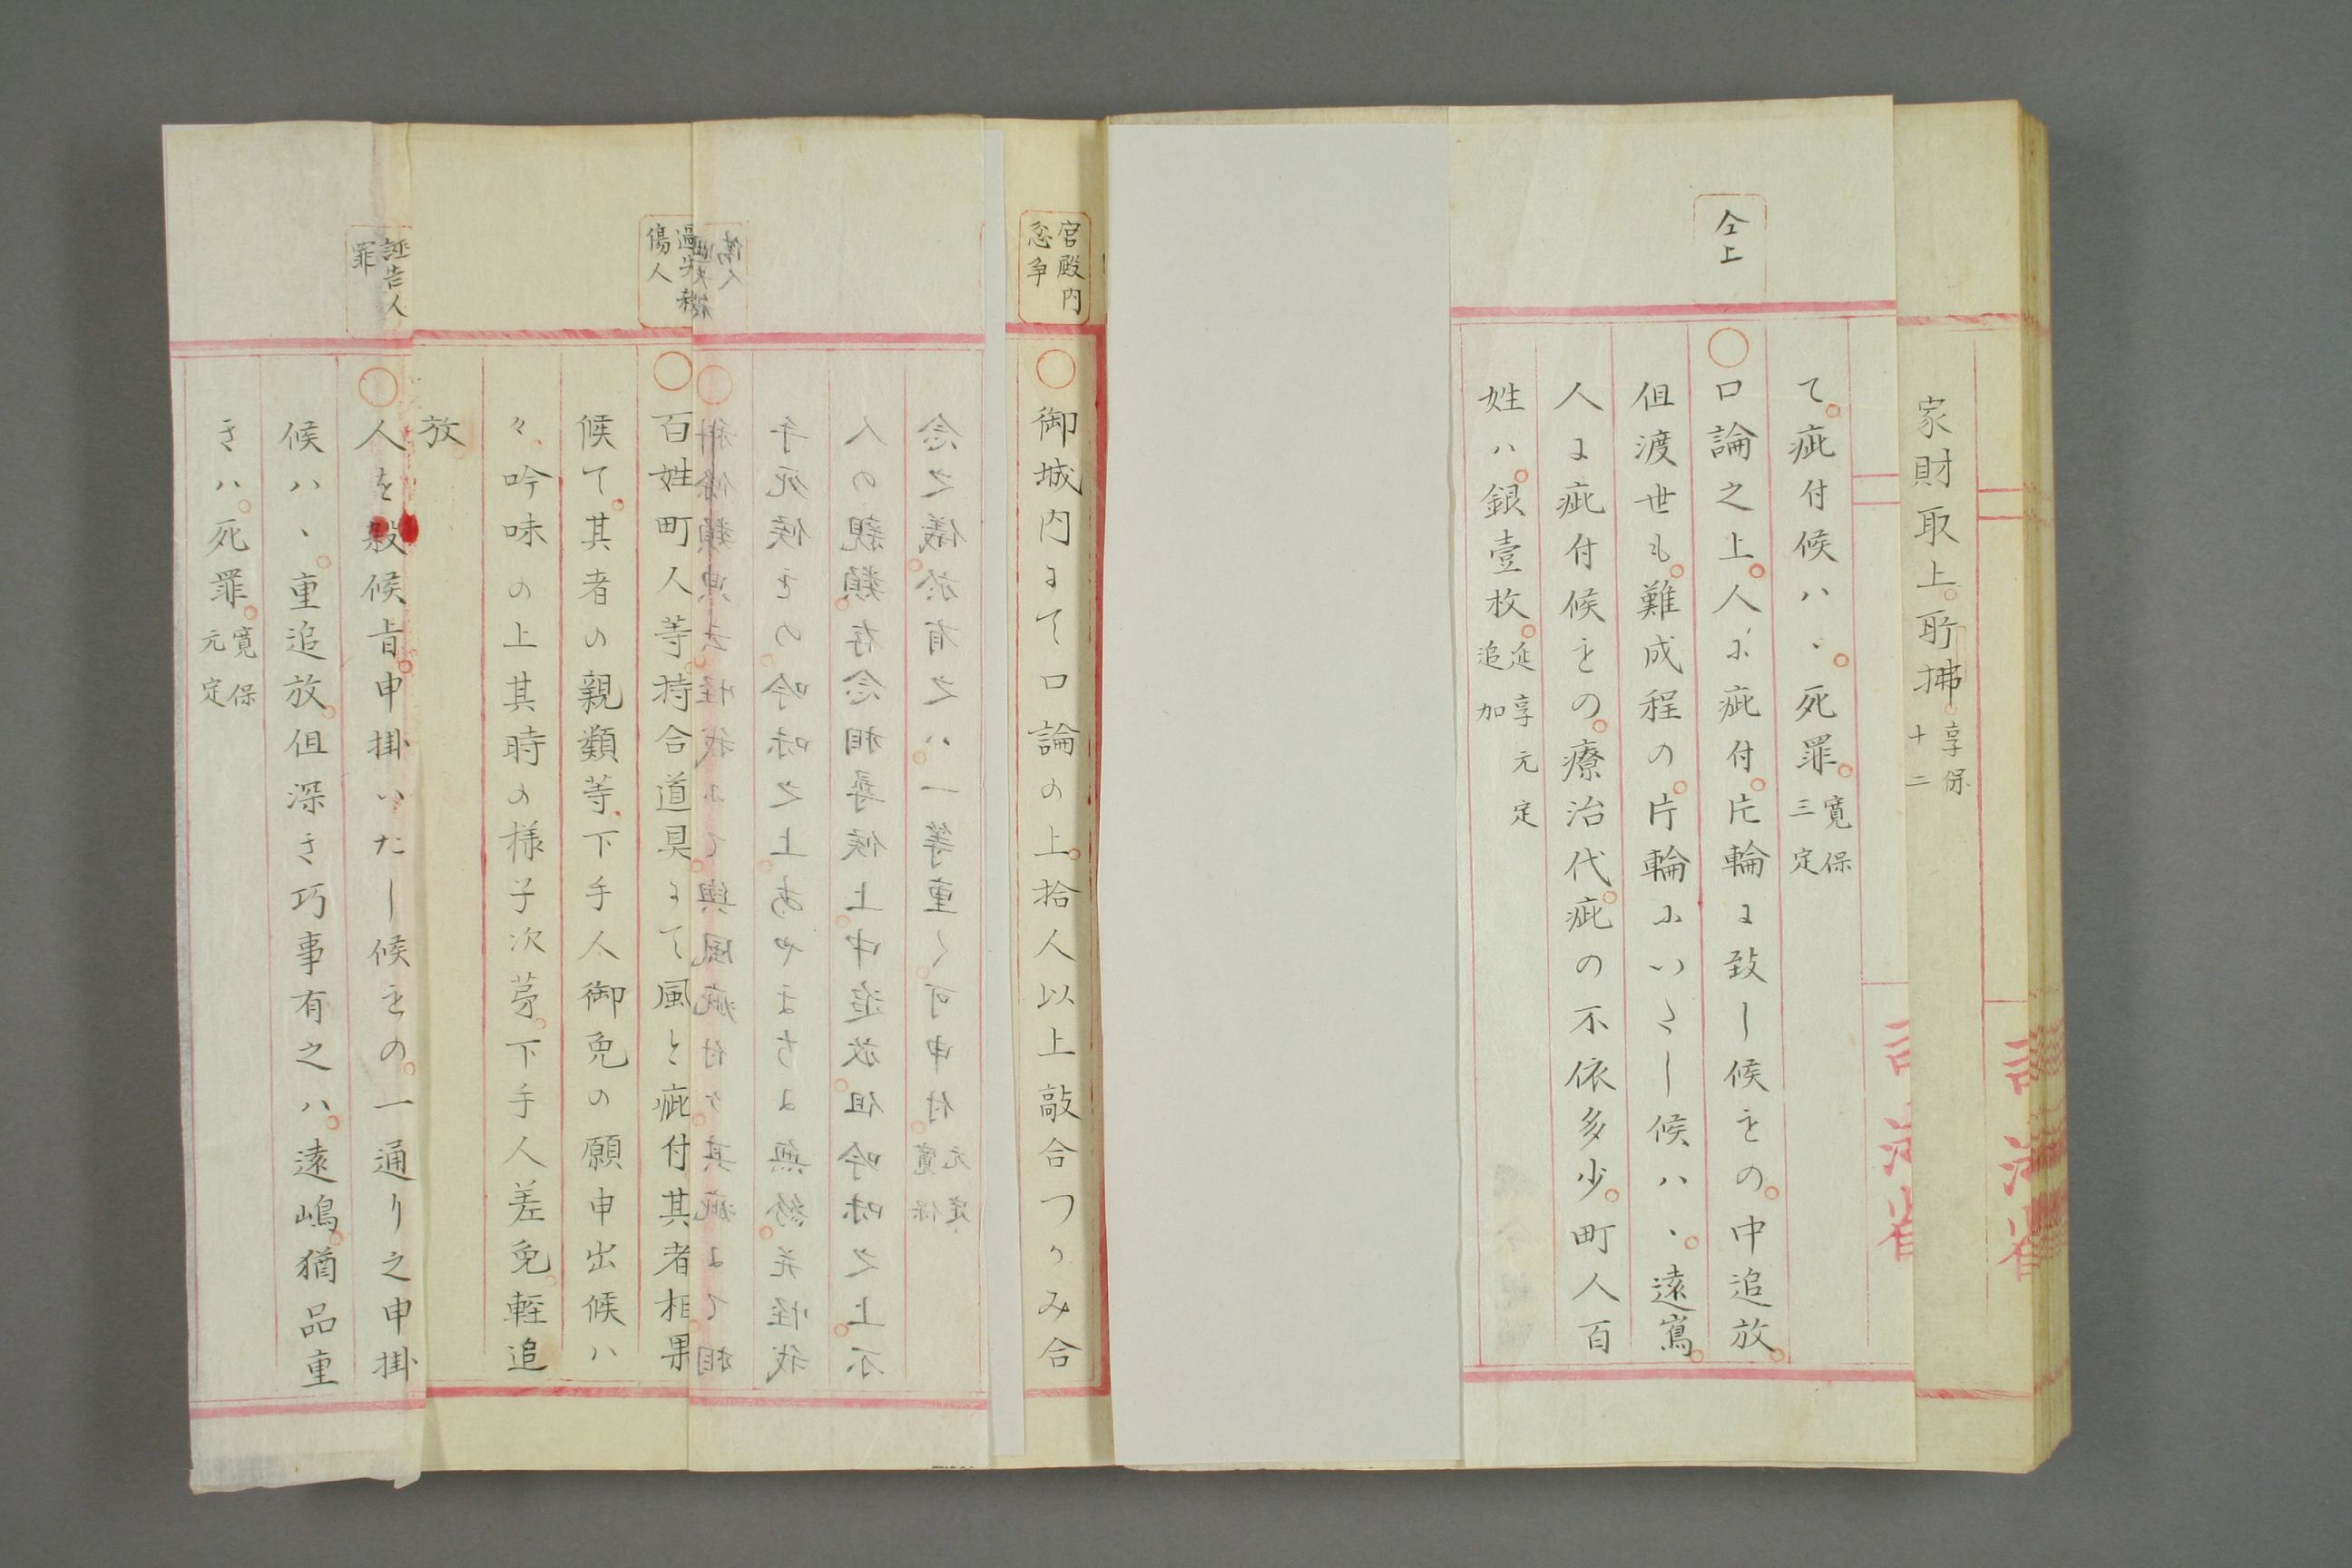 家財取上。所拂。享保十二
司法省
司法省
て。疵付候ハヽ。死罪。寛保三定
仝上
○口論之上。人ニ疵付。片輪ニ致し候もの。中追放。
但渡世も。難成程の。片輪ニいたし候ハヽ。遠嶌。
人ニ疵付候もの。療治代。疵の不依多少。町人百
姓ハ。銀壹枚。延享元定追加
宮殿内忿争
○御城内ニて口論の上。拾人以上敲合つかみ合
過失殺傷人
○百姓町人等持合道具ニて風と疵付其者相果
候て。其者の親類等。下手人御免の願申出候ハ
々。吟味の上其時の様子次第。下手人差免。軽追
放。
誣告人罪
○人を殺候旨。申掛いたし候もの。一通り之申掛
候ハヽ。重追放。但深き巧事有之ハ。遠嶋。猶品重
きハ。死罪。寛保元定
念之儀。於有之ハ。一等重く。可申付。寛保元定
人の親類。存念相尋候上。中追放。但吟味之上。不
手死候もの。吟味之上。あやまちニ無紛。并怪我